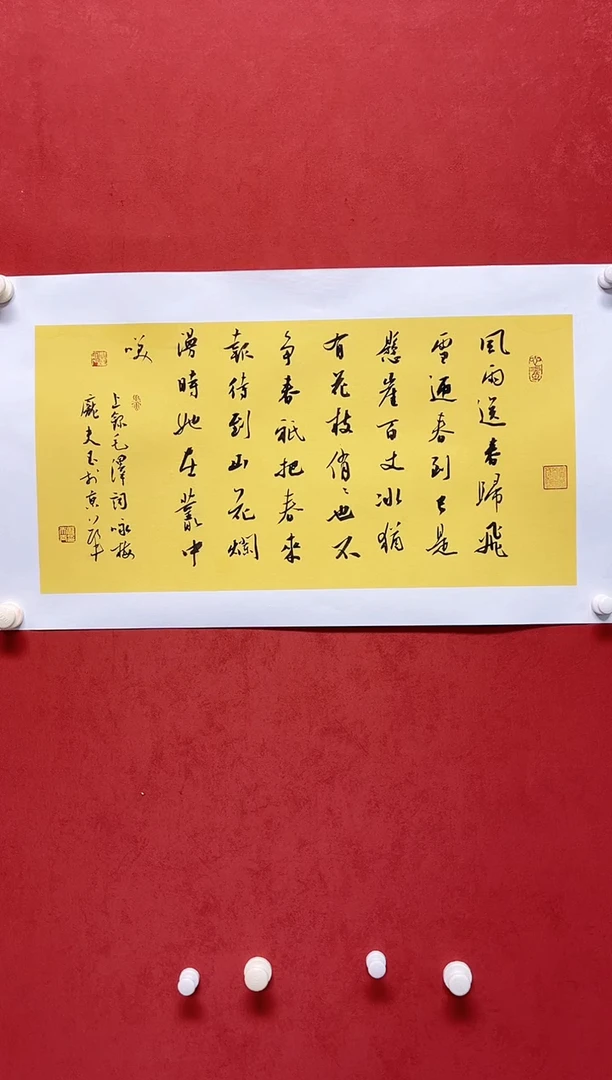 風雨送春歸飛
雪迎春到已是
懸崖百丈冰猶
有花枝俏〻也不
争春祇把春來
報待到山花爛
漫時她在叢中
咲
上錄毛澤詞咏梅
龐夫書於京